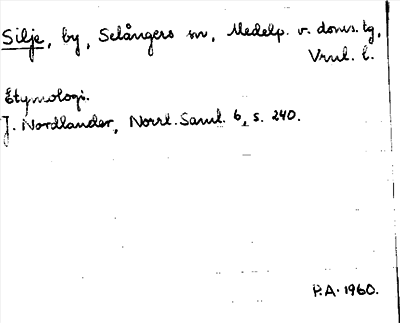 Silje, by, Selångers sn, Medelp. v. doms. tg,
Vnul. l.
Etymologi.
J. Nordlander, Norrl. Saml. 6, s. 240.
P.A. 1960.